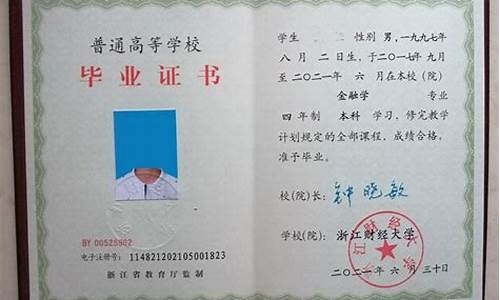 普通高等学校
毕业证书
BY 00528982
电子注册号: 114821202105001823
浙江省教育厅监制
学生 性别 男,一九九七年
八月二日生,于二〇一七年九月
至二〇二一年六月在本校(院)
金融学 专业
四年制 本科 学习,修完教学
计划规定的全部课程,成绩合格,
准予毕业。
校(院)长: 钟晓敏
学校(院): 浙江财经大学
二〇二一年六月三十日